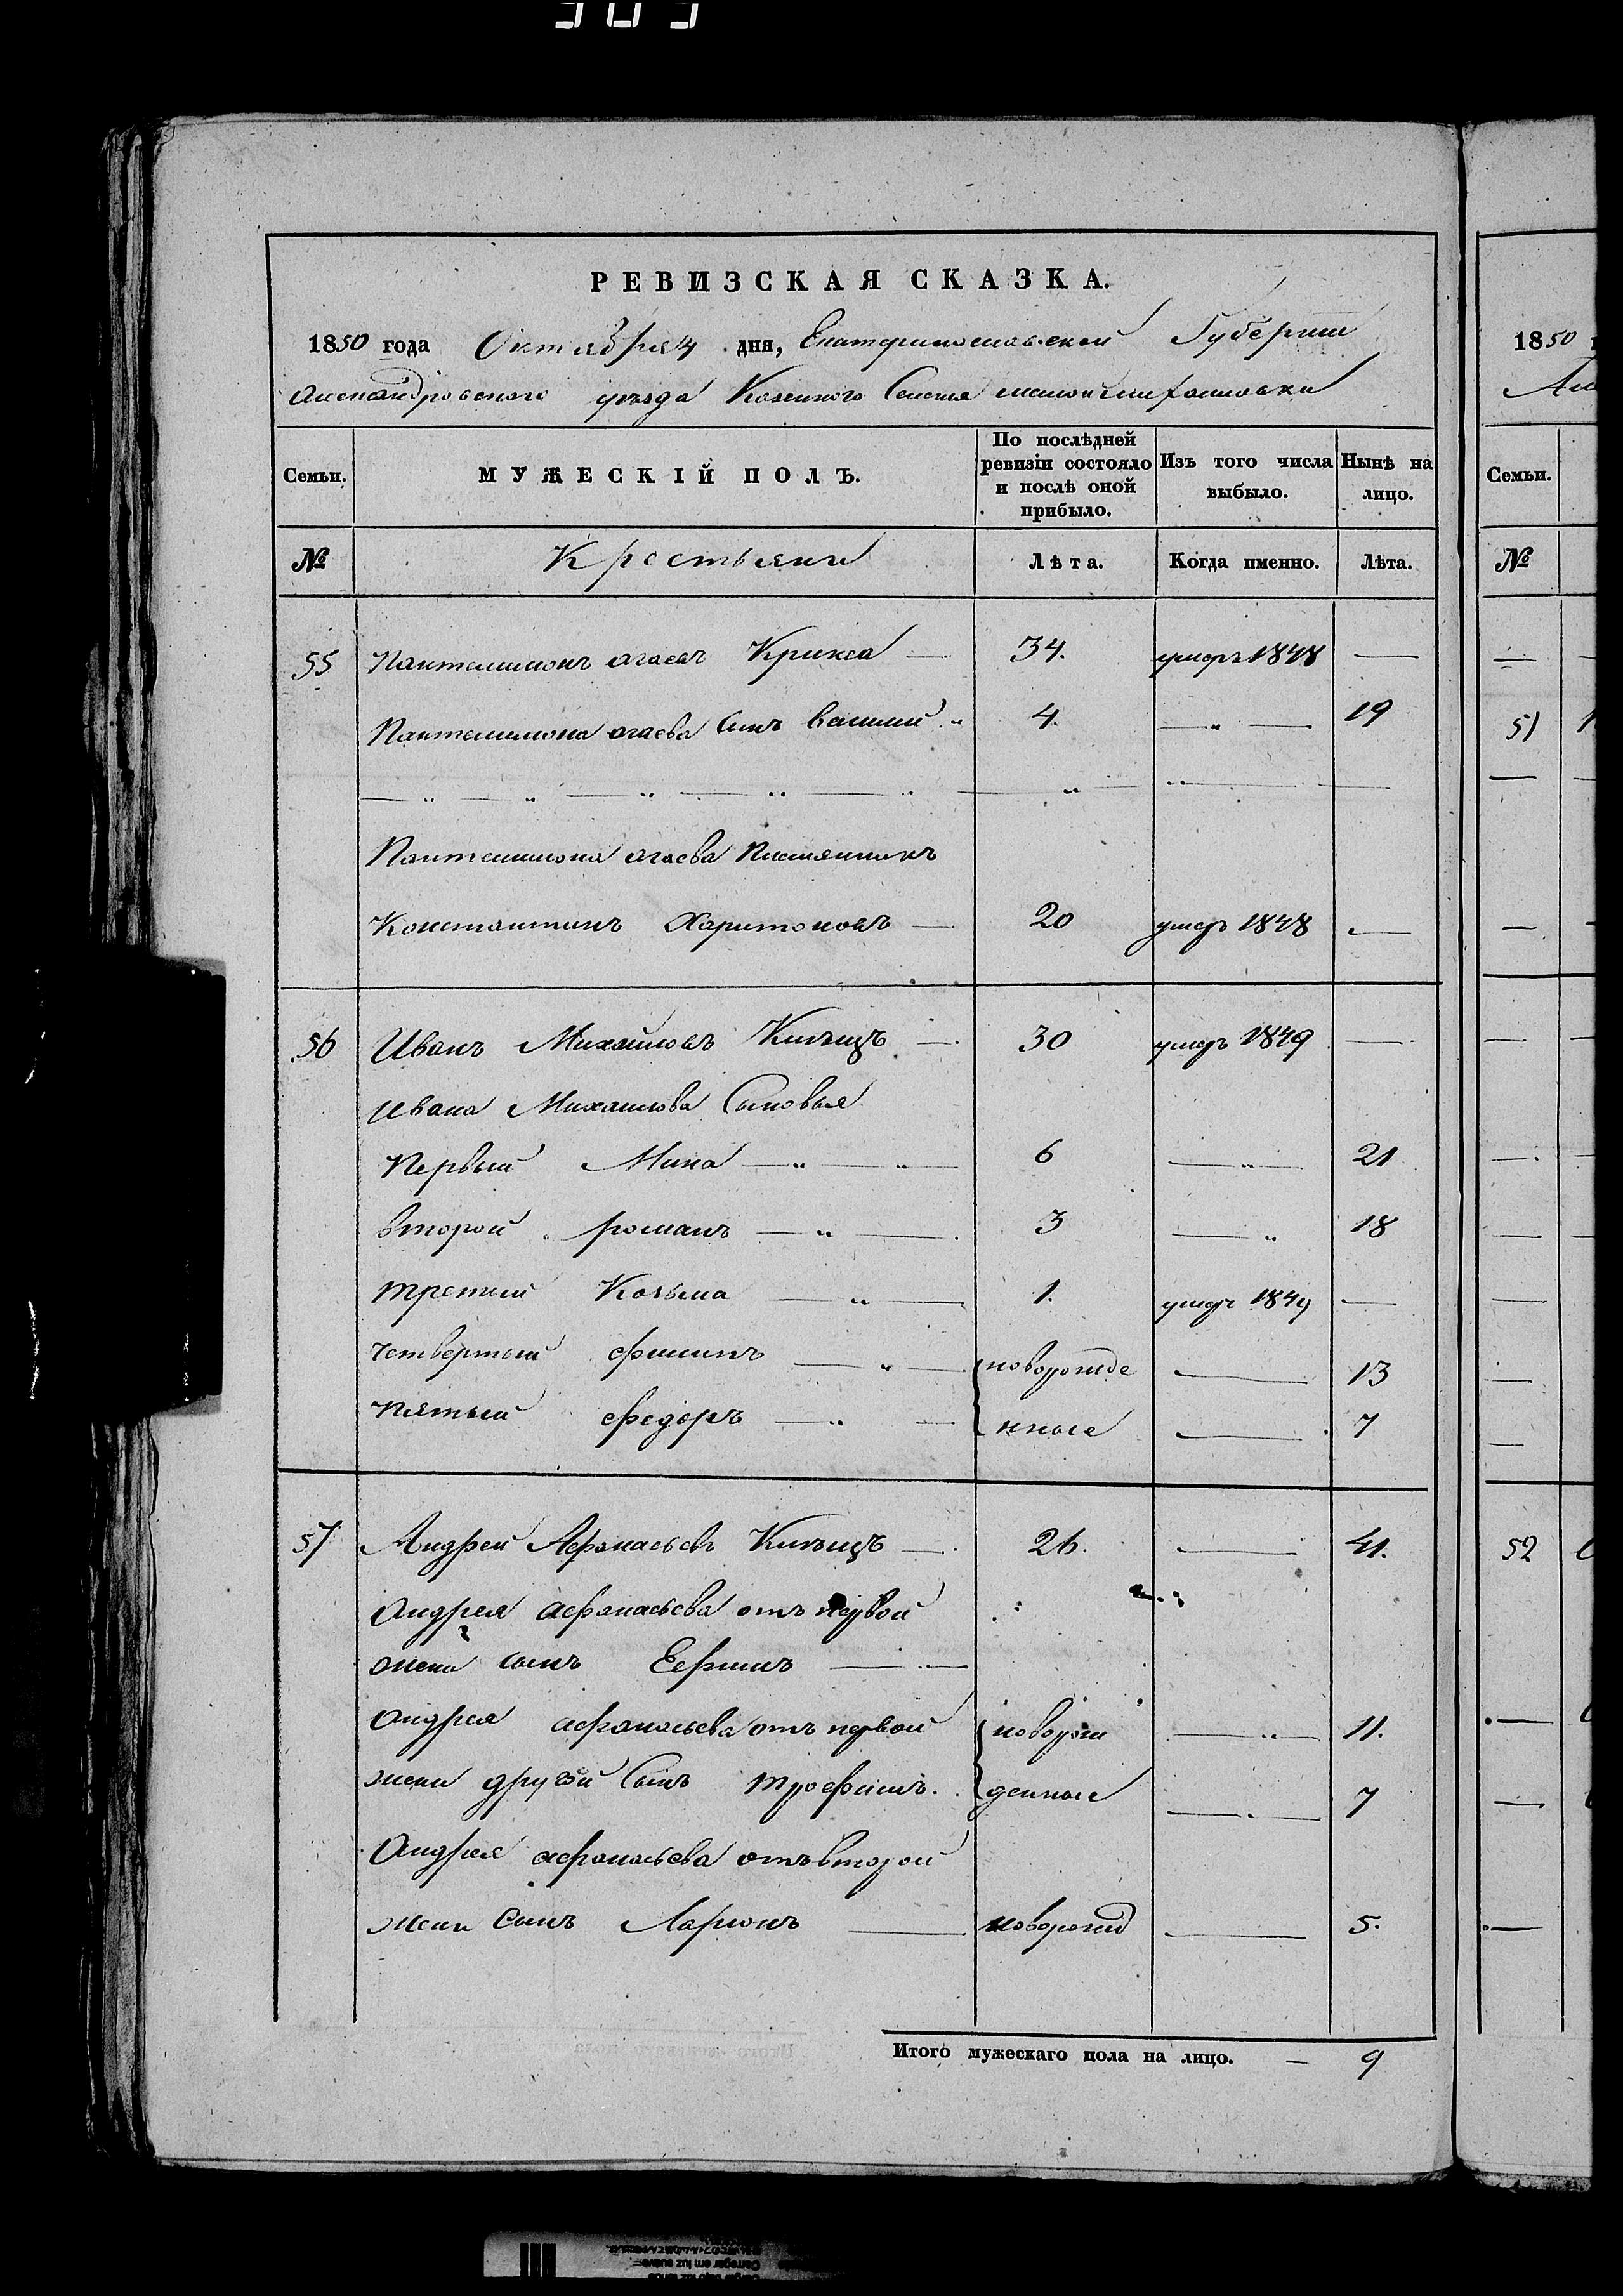 РЕВИЗСКАЯ СКАЗКА.
1850 года Октября 4 дня, Екатеринославской Губернии
Александровского уезда Казенного Селения
Семьи. МУЖЕСКІЙ ПОЛЪ. По послѣдней ревизіи состояло и послѣ оной прибыло. Изъ того числа выбыло. Нынѣ на лицо.
№ Крестьяне Лѣта. Когда именно. Лѣта.
55 Пантелимонъ агаевъ Крикса — 34. умеръ 1848 —
Пантелимона агаева Сынъ василий „ 4. — „ — 19
Пантелимона агаева Племянникъ
Константинъ Харитоновъ — 20 умеръ 1848 —
56 Иванъ Михайловъ — 30 умеръ 1849 —
ивана Михайлова Сыновья
Первый Мина — „ — „ — 6 — „ — 21
второй романъ — „ — 3 — „ 18
третий Козьма — „ — 1. умеръ 1849 —
четвертый филипъ — „ — новорожде — 13
пятый федоръ — „ — нные — 7
57 Андрей Афанасьевъ — 26. — 41.
андрея афанасьева отъ первой
жены сынъ Ефимъ —
андрея афанасьева отъ первой новорож — „ — 11.
жены другой Сынъ трофимъ. денные — 7
Андрея афанасьева отъ второй
жены Сынъ Ларионъ — новорожд — 5.
Итого мужескаго пола на лицо. — 9
1850
Семьи.
№
51
52